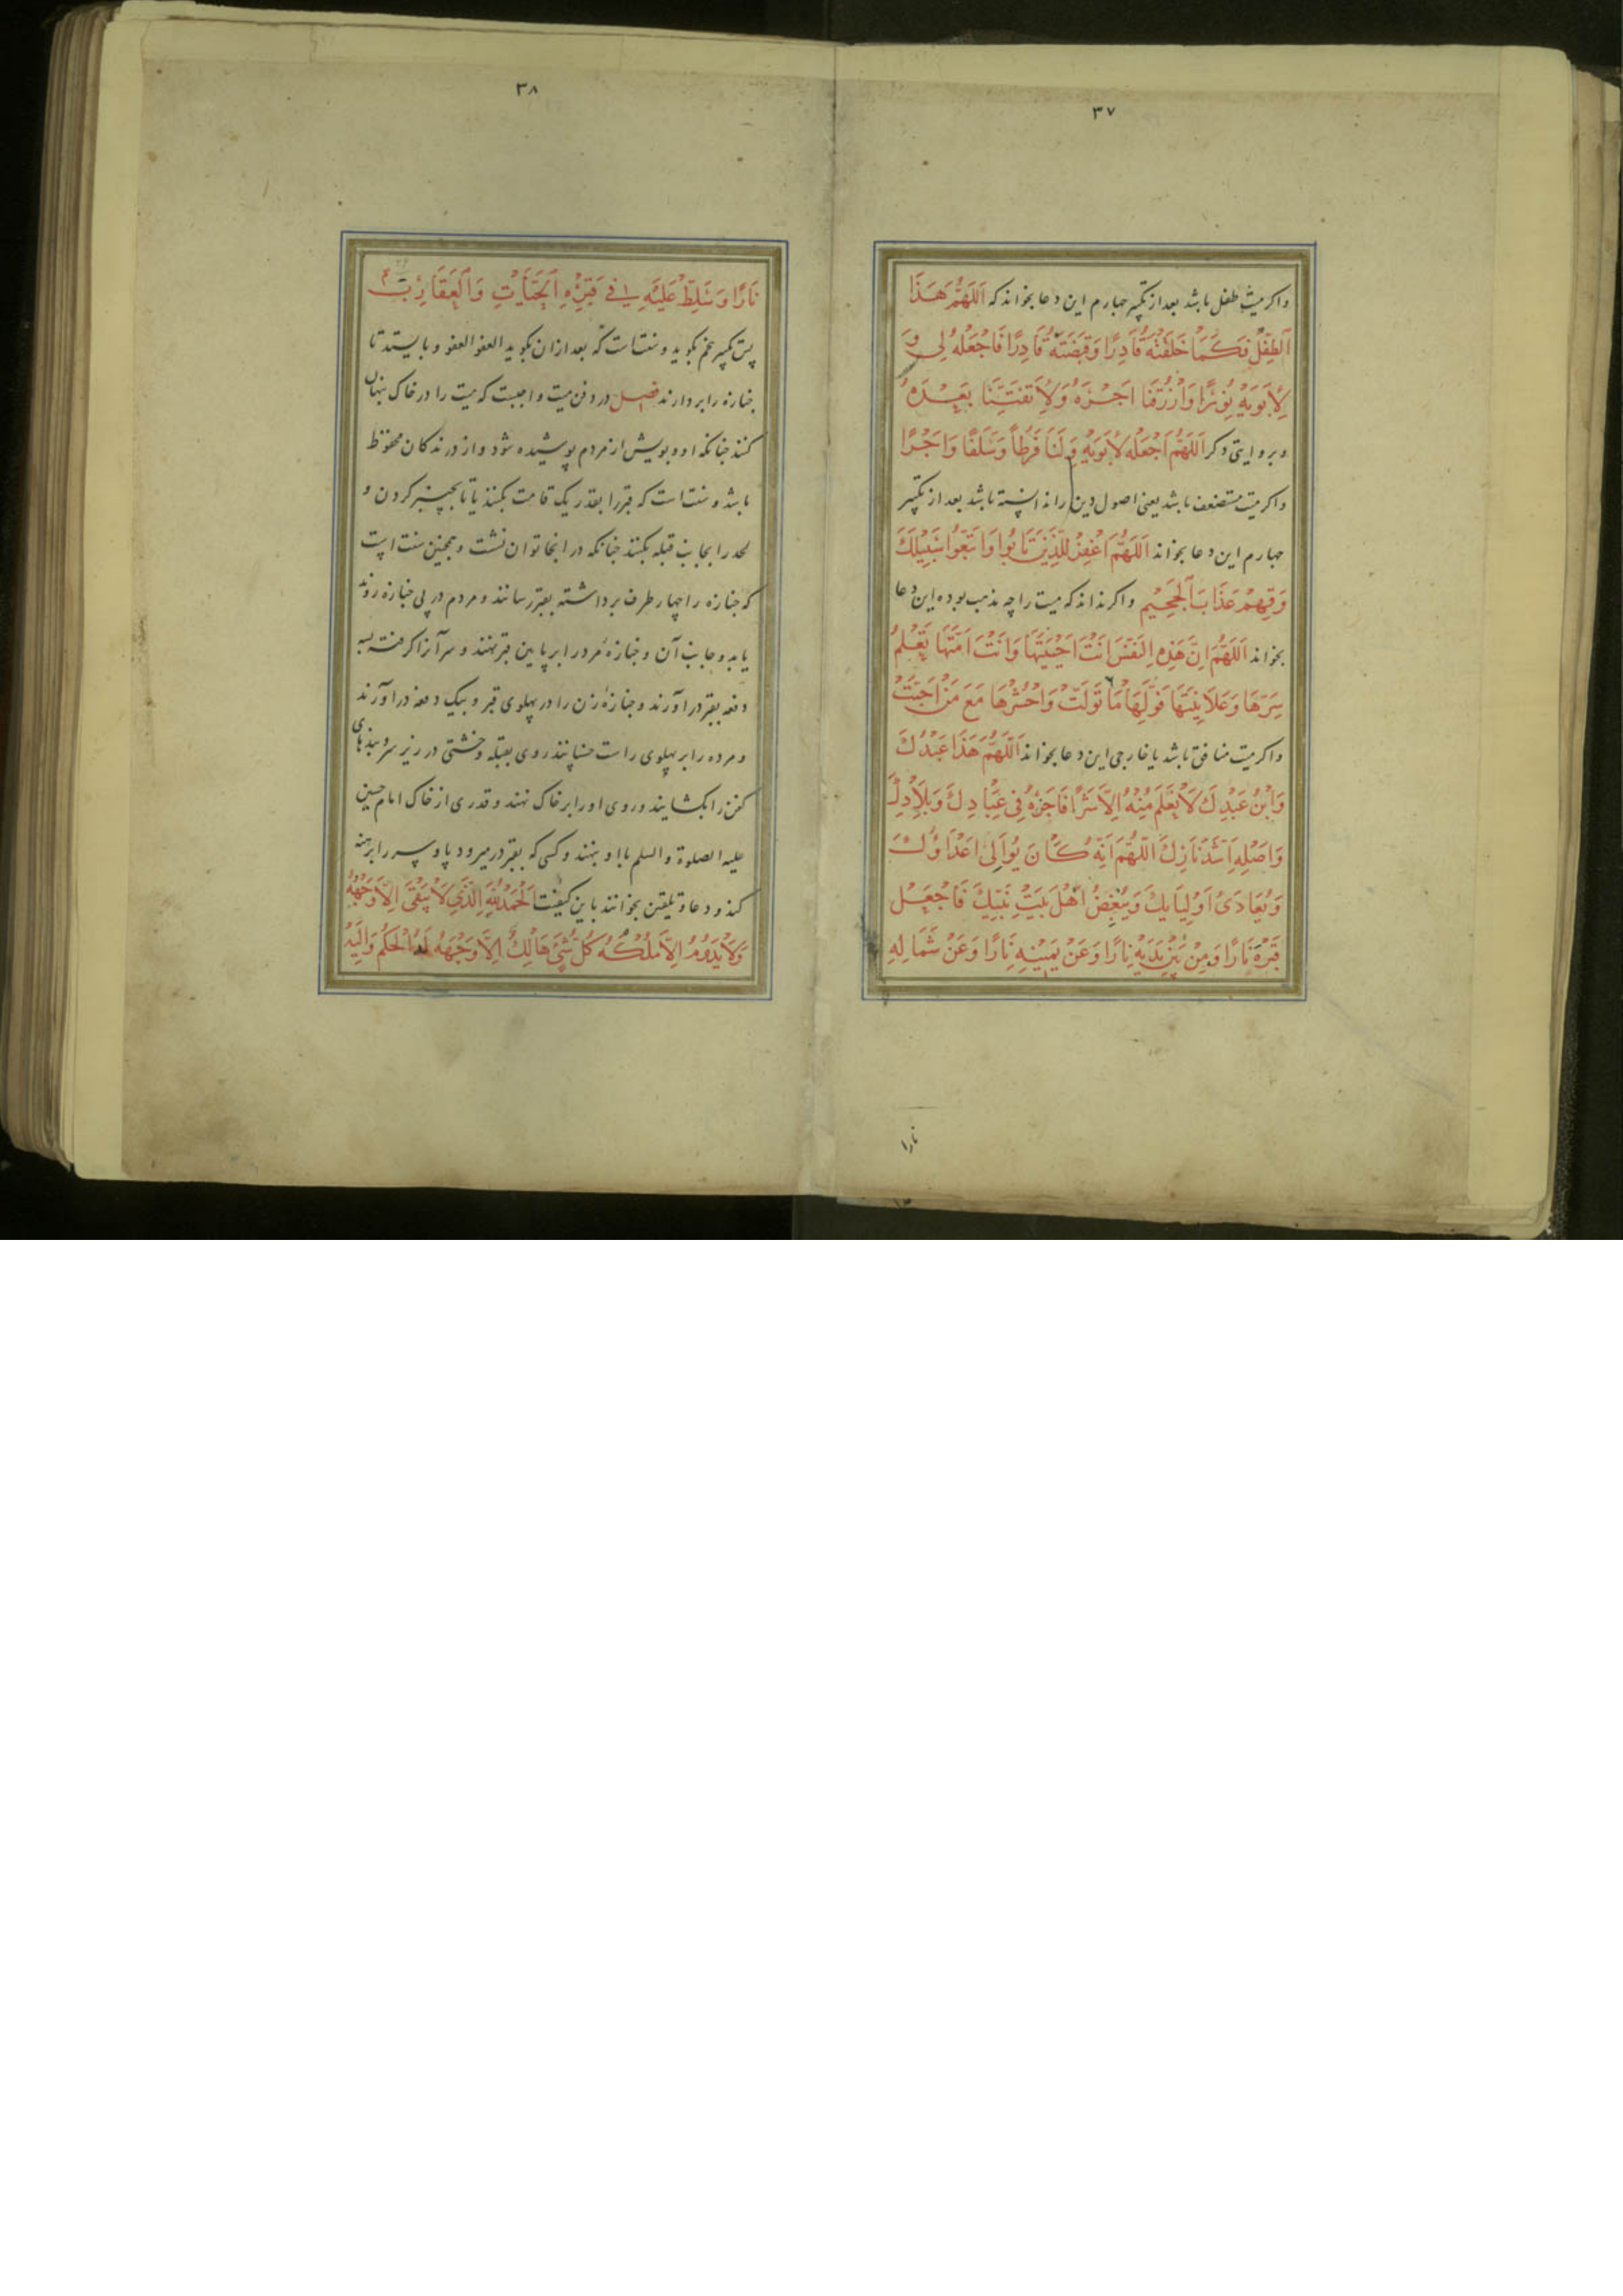 ۳۷
واکر میت طفل باشد بعد از تکبیر چهارم این دعا بخواند که اَللّهُمَّ هَذَا
اَلطِّفْلُ فَكَمَا خَلَقْتَهُ قَادِرًا وَقَبَضْتَهُ قَادِرًا فَاجْعَلْهُ لِي وَ
لِاَبَوَيْهِ نُورًا وَارْزُقْنَا اَجْرَهُ وَلَا تَفْتِنَّا بَعْدَهُ
و بروایتی دکر اَللّهُمَّ اجْعَلْهُ لِاَبَوَيْهِ وَلَنَا فَرَطًا وَسَلَفًا وَاَجْرًا
واکر میت مستضعف باشد یعنی اصول دین را ندانسته باشد بعد از تکبیر
چهارم این دعا بخواند اَللّهُمَّ اغْفِرْ لِلَّذِينَ تَابُوا وَاتَّبَعُوا سَبِيلَكَ
وَقِهِمْ عَذَابَ الْجَحِيمِ واکر نداند که میت را چه مذهب بوده این دعا
بخواند اَللّهُمَّ اِنَّ هَذِهِ النَّفْسَ اَنْتَ اَحْيَيْتَهَا وَاَنْتَ اَمَتَّهَا تَعْلَمُ
سِرَّهَا وَعَلَانِيَتَهَا فَوَلِّهَا مَا تَوَلَّتْ وَاحْشُرْهَا مَعَ مَنْ اَحَبَّتْ
واکر میت منافق باشد یا خارجی این دعا بخواند اَللّهُمَّ هَذَا عَبْدُكَ
وَابْنُ عَبْدِكَ لَا نَعْلَمُ مِنْهُ اِلَّا شَرًّا فَاخْزِهِ فِي عِبَادِكَ وَبِلَادِكَ
وَاَصْلِهِ اَشَدَّ نَارِكَ اَللّهُمَّ اِنَّهُ كَانَ يُوَالِي اَعْدَاؤُكَ
وَيُعَادَى اَوْلِيَايِكَ وَيُبْغِضُ اَهْلَ بَيْتِ نَبِيِّكَ فَاجْعَلْ
قَبْرَهُ نَارًا وَمِنْ بَيْنِ يَدَيْهِ نَارًا وَعَنْ يَمِينِهِ نَارًا وَعَنْ شِمَالِهِ
نارا
۳۸
نَارًا وَسَلِّطْ عَلَيْهِ فِي قَبْرِهِ الْحَيَّاتِ وَالْعَقَارِبَ
پس تکبیر پنجم بکوید و سنت است که بعد از ان بکوید العفو العفو و بایستد تا
جنازه را بردارند فصل در دفن میت واجبست که میت را در خاک پنهان
کنند چنانکه او و بویش از مردم پوشیده شود و از درندکان محفوظ
باشد و سنت است که قبر را بقدر یک قامت بکنند یا تا بچنبر کردن و
لحد را بجانب قبله بکنند چنانکه در انجا توان نشست و همچنین سنت است
که جنازه را چهار طرف برداشته بقبر رسانند و مردم در پی جنازه روند
یا بدو جانب آن و جنازهٔ مرد را بر پایین قبر نهند و سر آنرا کرفته بسه
دفعه بقبر درآورند و جنازهٔ زن را در پهلوی قبر و بیک دفعه درآورند
و مرده را بر پهلوی راست خسبانند روی بقبله و خشتی در زیر سر و بندهای
کفن را بکشایند و روی او را بر خاک نهند و قدری از خاک امام حسین
علیه الصلوة و السلم با او بنهند و کسی که بقبر در میرود پا و سر را برهنه
کند و دعا و تلقین بخوانند باین کیفیت اَلْحَمْدُ لِلّهِ الَّذِي لَا يَبْقَى اِلَّا وَجْهُهُ
وَلَا يَدُومُ اِلَّا مُلْكُهُ كُلُّ شَيْءٍ هَالِكٌ اِلَّا وَجْهَهُ لَهُ الْحُكْمُ وَاِلَيْهِ